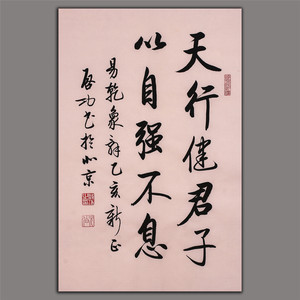 天行健君子
以自强不息
易乾象辞乙亥新正
启功书於北京